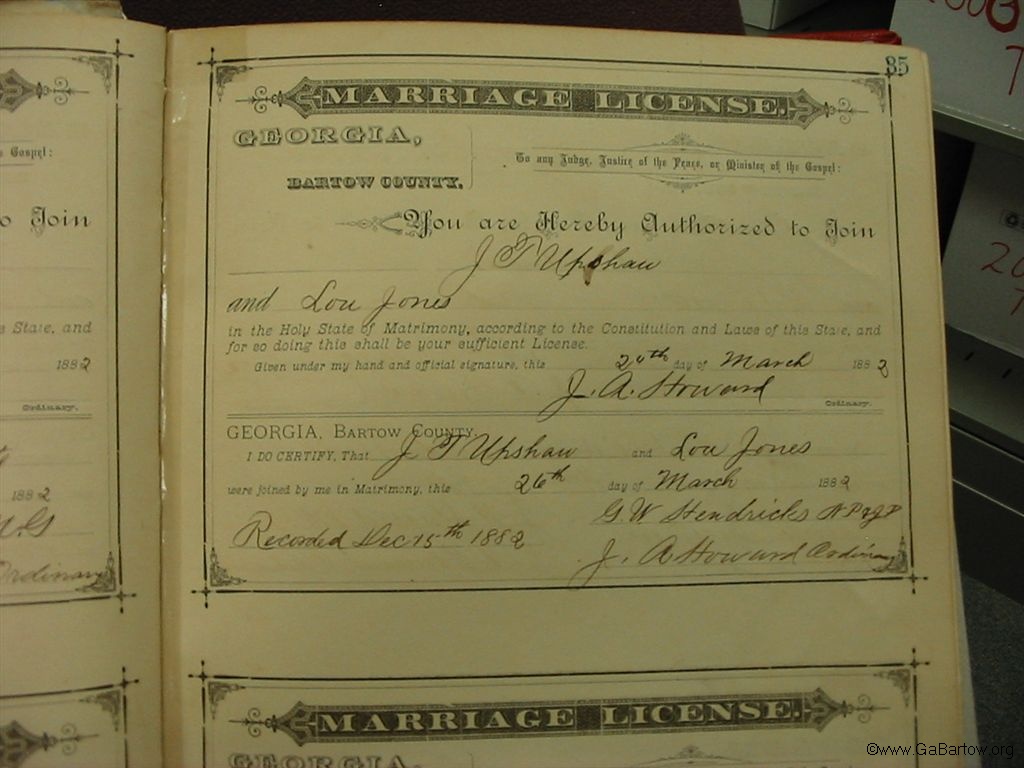 85
MARRIAGE LICENSE.
GEORGIA,
BARTOW COUNTY.
To any Judge, Justice of the Peace, or Minister of the Gospel:
You are Hereby Authorized to Join
J T Upshaw
and Lou Jones
in the Holy State of Matrimony, according to the Constitution and Laws of this State, and
for so doing this shall be your sufficient License.
Given under my hand and official signature, this 20th day of March 1882
J. A. Howard
Ordinary.
GEORGIA, BARTOW COUNTY.
I DO CERTIFY, That J T Upshaw and Lou Jones
were joined by me in Matrimony, this 26th day of March 1882
G. W Hendricks N P & J P
Recorded Dec 15th 1882
J. A Howard Ordinary
MARRIAGE LICENSE.
GEORGIA,
Gospel:
o Join
State, and
1882
Ordinary.
1882
Ordinary
©www.GaBartow.org